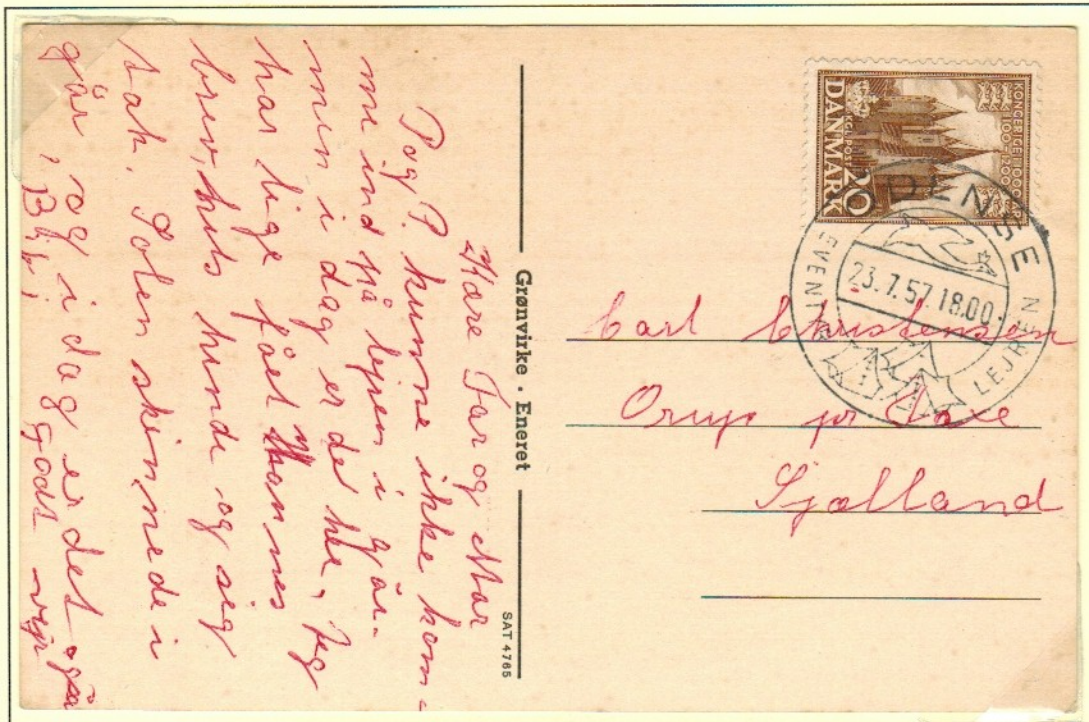 Kære Far og Mor
P og P. kunne ikke kom-
me ind på lejren i går-
men i dag er de her, Jeg
har lige fået Hannes
brev, hils hende og sig
tak. Solen skinnede i
går, og i dag er det også
godt vejr
Grønvirke · Eneret
SAT 4765
KONGERIGE I 1000 ÅR
1100-1200
KGL POST
DANMARK 20
ODENSE
23.7.57.18.00
EVENTYR LEJREN
Carl Christensen
Orup pr Faxe
Sjælland